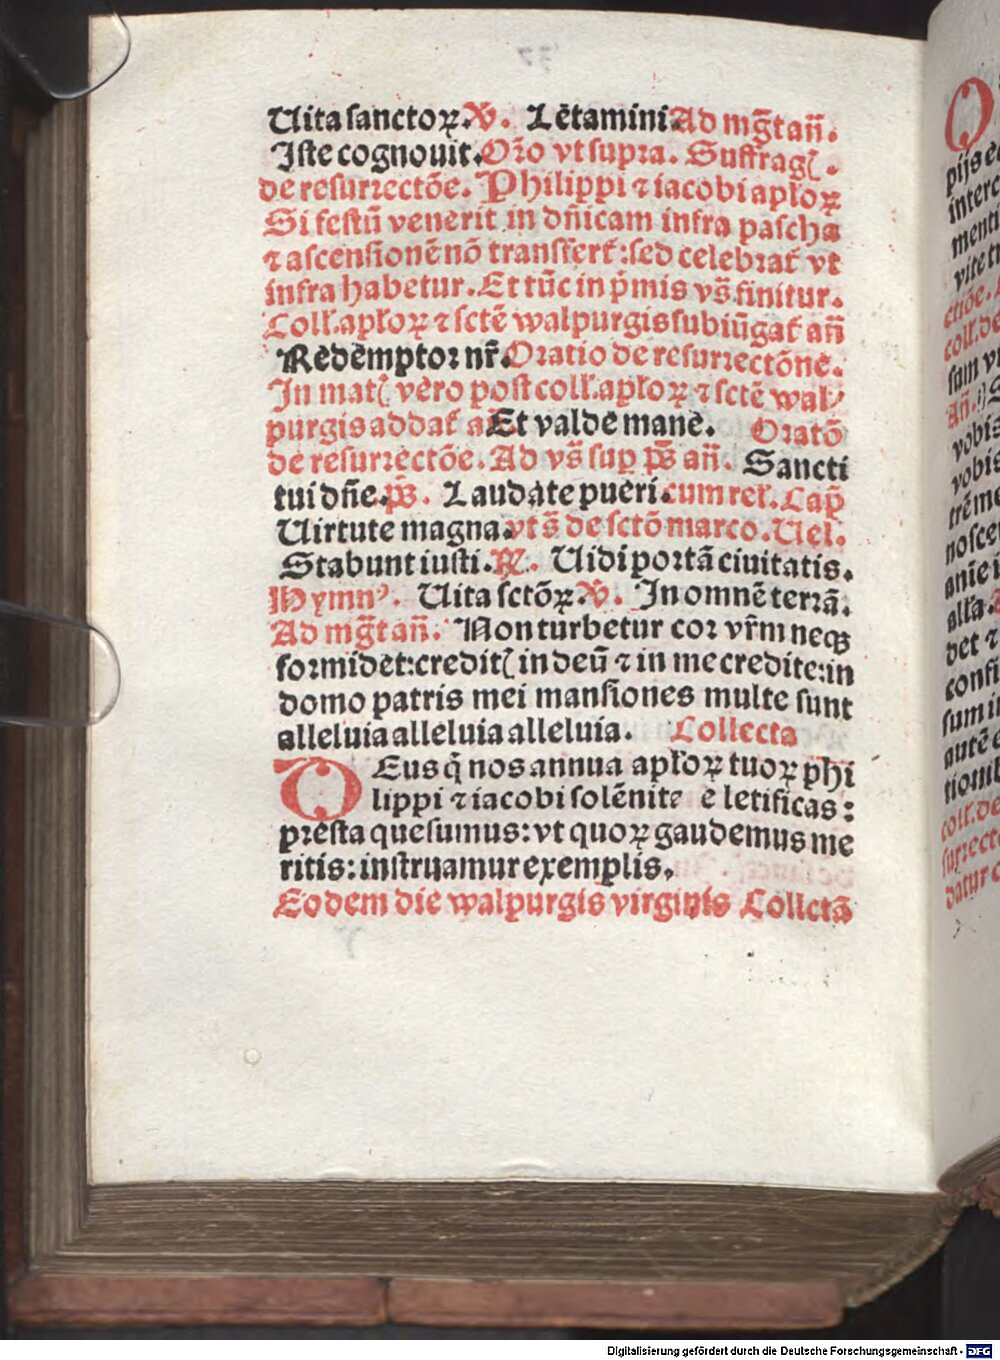 Uita sanctoꝝ. ℣. Letamini. Ad mg̃t añ.
Iste cognouit. Oro vt supra. Suffrag
de resurrectõe. Philippi ⁊ iacobi apłoꝝ
Si festũ venerit in dñicam infra pascha
⁊ ascensionẽ nõ transfert̃: sed celebrat̃ vt
infra habetur. Et tũc in p̃mis vs̃. finitur.
Coll. apłoꝝ ⁊ sctẽ walpurgis subiũgat̃ añ
Redemptor nr̃. Oratio de resurrectõne.
In mat vero post coll. apłoꝝ ⁊ sctẽ wal⸗
purgis addat̃ añ Et valde mane. Oratõ
de resurrectõe. Ad vs̃ sup p̃s añ. Sancti
tui dñe. p̃s. Laudate pueri. cum rel̃. Cap̃
Uirtute magna. vt s̃ de sctõ marco. Uel.
Stabunt iusti. ℟. Uidi portã ciuitatis.
Hymnꝰ. Uita sctõꝝ. ℣. In omnẽ terrã.
Ad mg̃t añ. Non turbetur cor vr̃m neqꝫ
formidet: credit in deũ ⁊ in me credite: in
domo patris mei mansiones multe sunt
alleluia alleluia alleluia. Collecta
DEus q̃ nos annua apłoꝝ tuoꝝ phi
lippi ⁊ iacobi solẽnite e letificas:
presta quesumus: vt quoꝝ gaudemus me
ritis: instruamur exemplis.
Eodem die walpurgis virginis Collctã
pijs e
interc
menti
vite t
ctiõe.
coll. de
sum v
Añ.
vobis
vobis
trẽ m
nosce
anie i
alla.
det ⁊
confi
sum i
autẽ
tioni
coll. de
surrect
datur
Digitalisierung gefördert durch die Deutsche Forschungsgemeinschaft - DFG